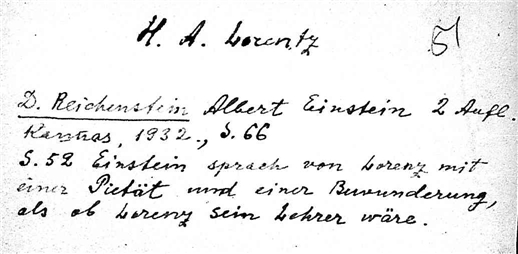 H. A. Lorentz
51
D. Reichenstein Albert Einstein 2 Aufl.
Kaunas, 1932., S. 66
S. 52 Einstein sprach von Lorenz mit
einer Pietät und einer Bewunderung,
als ob Lorenz sein Lehrer wäre.